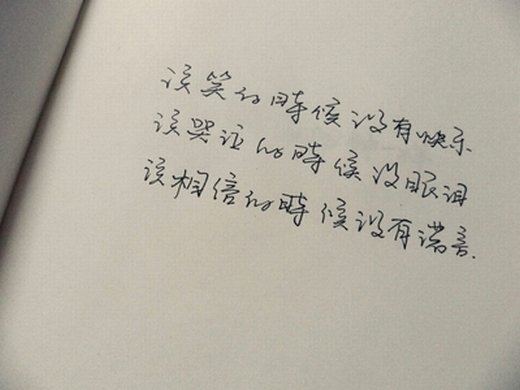 该笑的時候没有快乐
该哭泣的時候没眼泪
该相信的時候没有诺言.